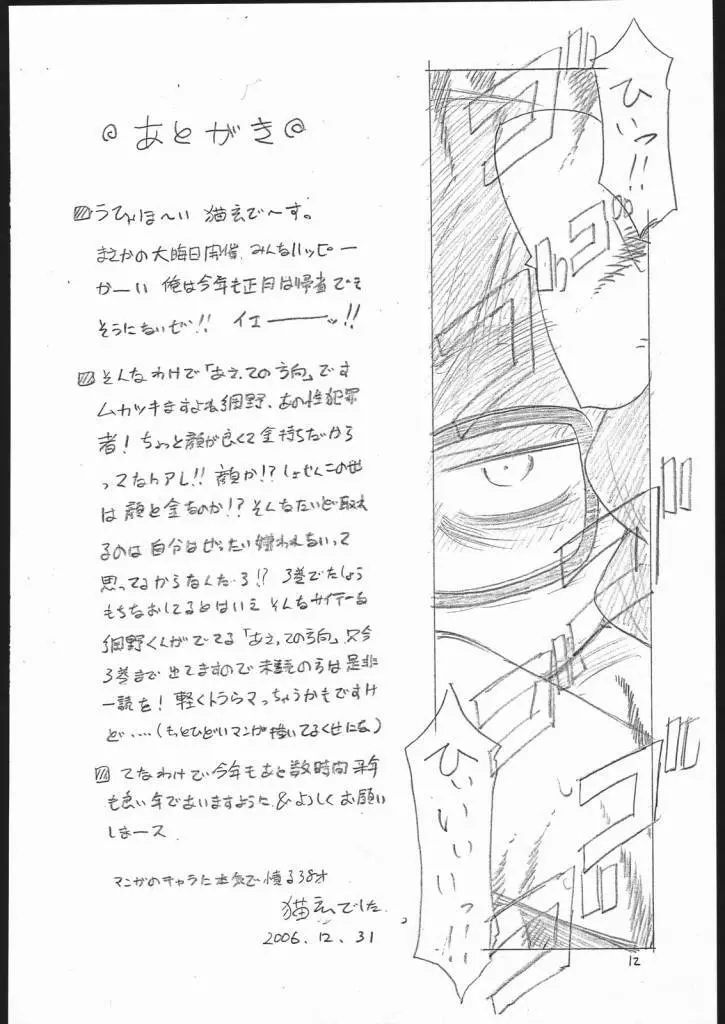 あとがき
うひょほ〜い 猫玄で〜す。
まさかの大晦日開催、みんなハッピー
かーい 俺は今年も正月は帰省でき
そうにないぜ!! イエーーーッ!!
そんなわけで「あえての方向」です
ムカツキますよね網野、あの性犯罪
者! ちょっと顔が良くて金持ちだから
ってなんアレ!! 顔か!? しょせんこの世
は顔と金なのか!? そんなたいど取れ
るのは自分はぜったい嫌われないって
思ってるからなんだろ!? 3巻でたしょう
もちなおしてるとはいえ そんなサイテーな
網野くんがでてる「あえての方向」只今
3巻まで出てますので未読の方は是非
一読を! 軽くトラウマっちゃうかもですけ
ど‥‥(もっとひどいマンガ描いてるくせにな)
てなわけで今年もあと数時間 来年
も良い年でありますように & よろしくお願い
しまース
マンガのキャラに本気で憤る38才
猫玄でした。
2006.12.31
ひいっ!!
ひいいいっ!!
12